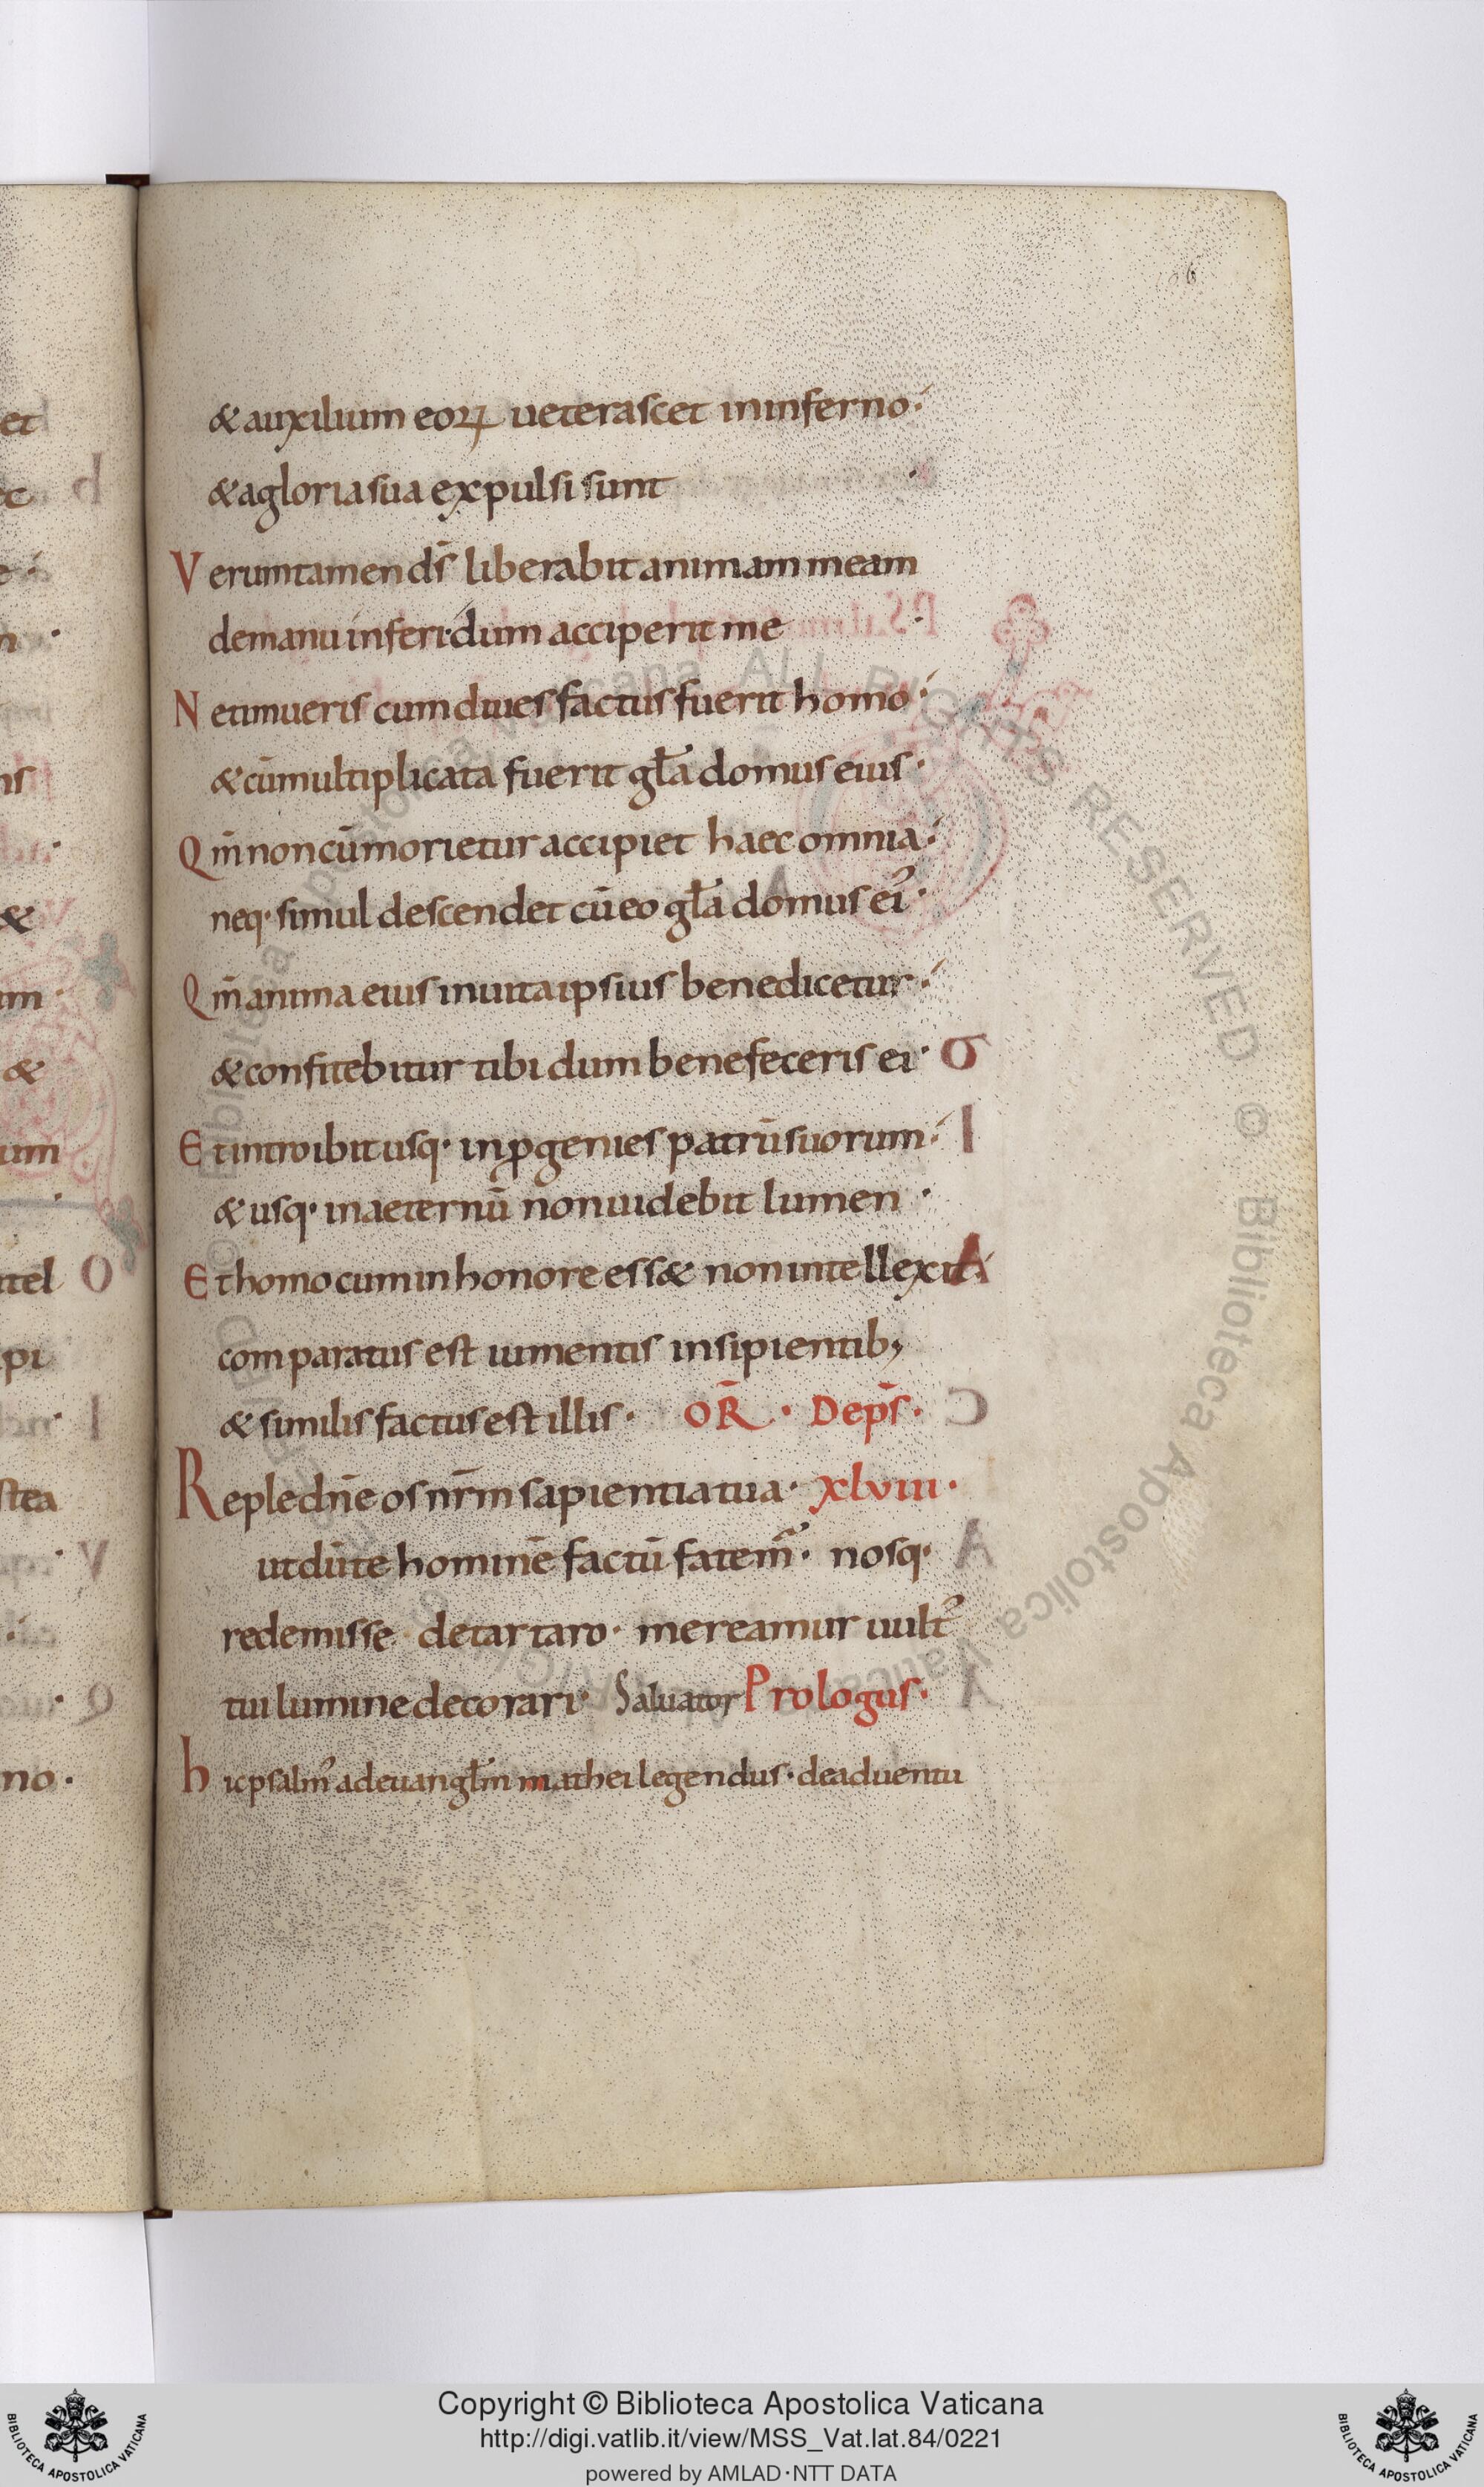 & auxilium eoꝝ ueterascet ininferno·
& agloria sua expulsi sunt ·
Verumtamen ds̄ liberabit animam meam
demanu inferi· dum acciperit me ·
Netimueris cum diues factus fuerit homo·
& cū multiplicata fuerit gła domus eius·
Qm̄ non cū morietur accipiet haec omnia·
neq· simul descendet cū eo gła domus ei᾽·
Qm̄ anima eius inuita ipsius benedicetur·
& confitebitur tibi dum benefeceris ei·
Et introibit usq· inꝓgenies patrū suorum·
& usq· inaeternū non uidebit lumen ·
Et homo cum inhonore ess& non intellexit·
comparatus est iumentis insipientib;
& similis factus est illis· OR̄· Deps̄·
Reple dn̄e os nr̄m sapientia tua· xlviii·
ut dū te hominē factū fatem᾽· nosq·
redemisse detartaro· mereamur uult᾽
tui lumine decorari· Saluator Prologus·
hic psalm᾽ adeuangłm mathei legendus· deaduentu
6
Copyright © Biblioteca Apostolica Vaticana
http://digi.vatlib.it/view/MSS_Vat.lat.84/0221
powered by AMLAD·NTT DATA
BIBLIOTECA APOSTOLICA VATICANA
BIBLIOTECA APOSTOLICA VATICANA